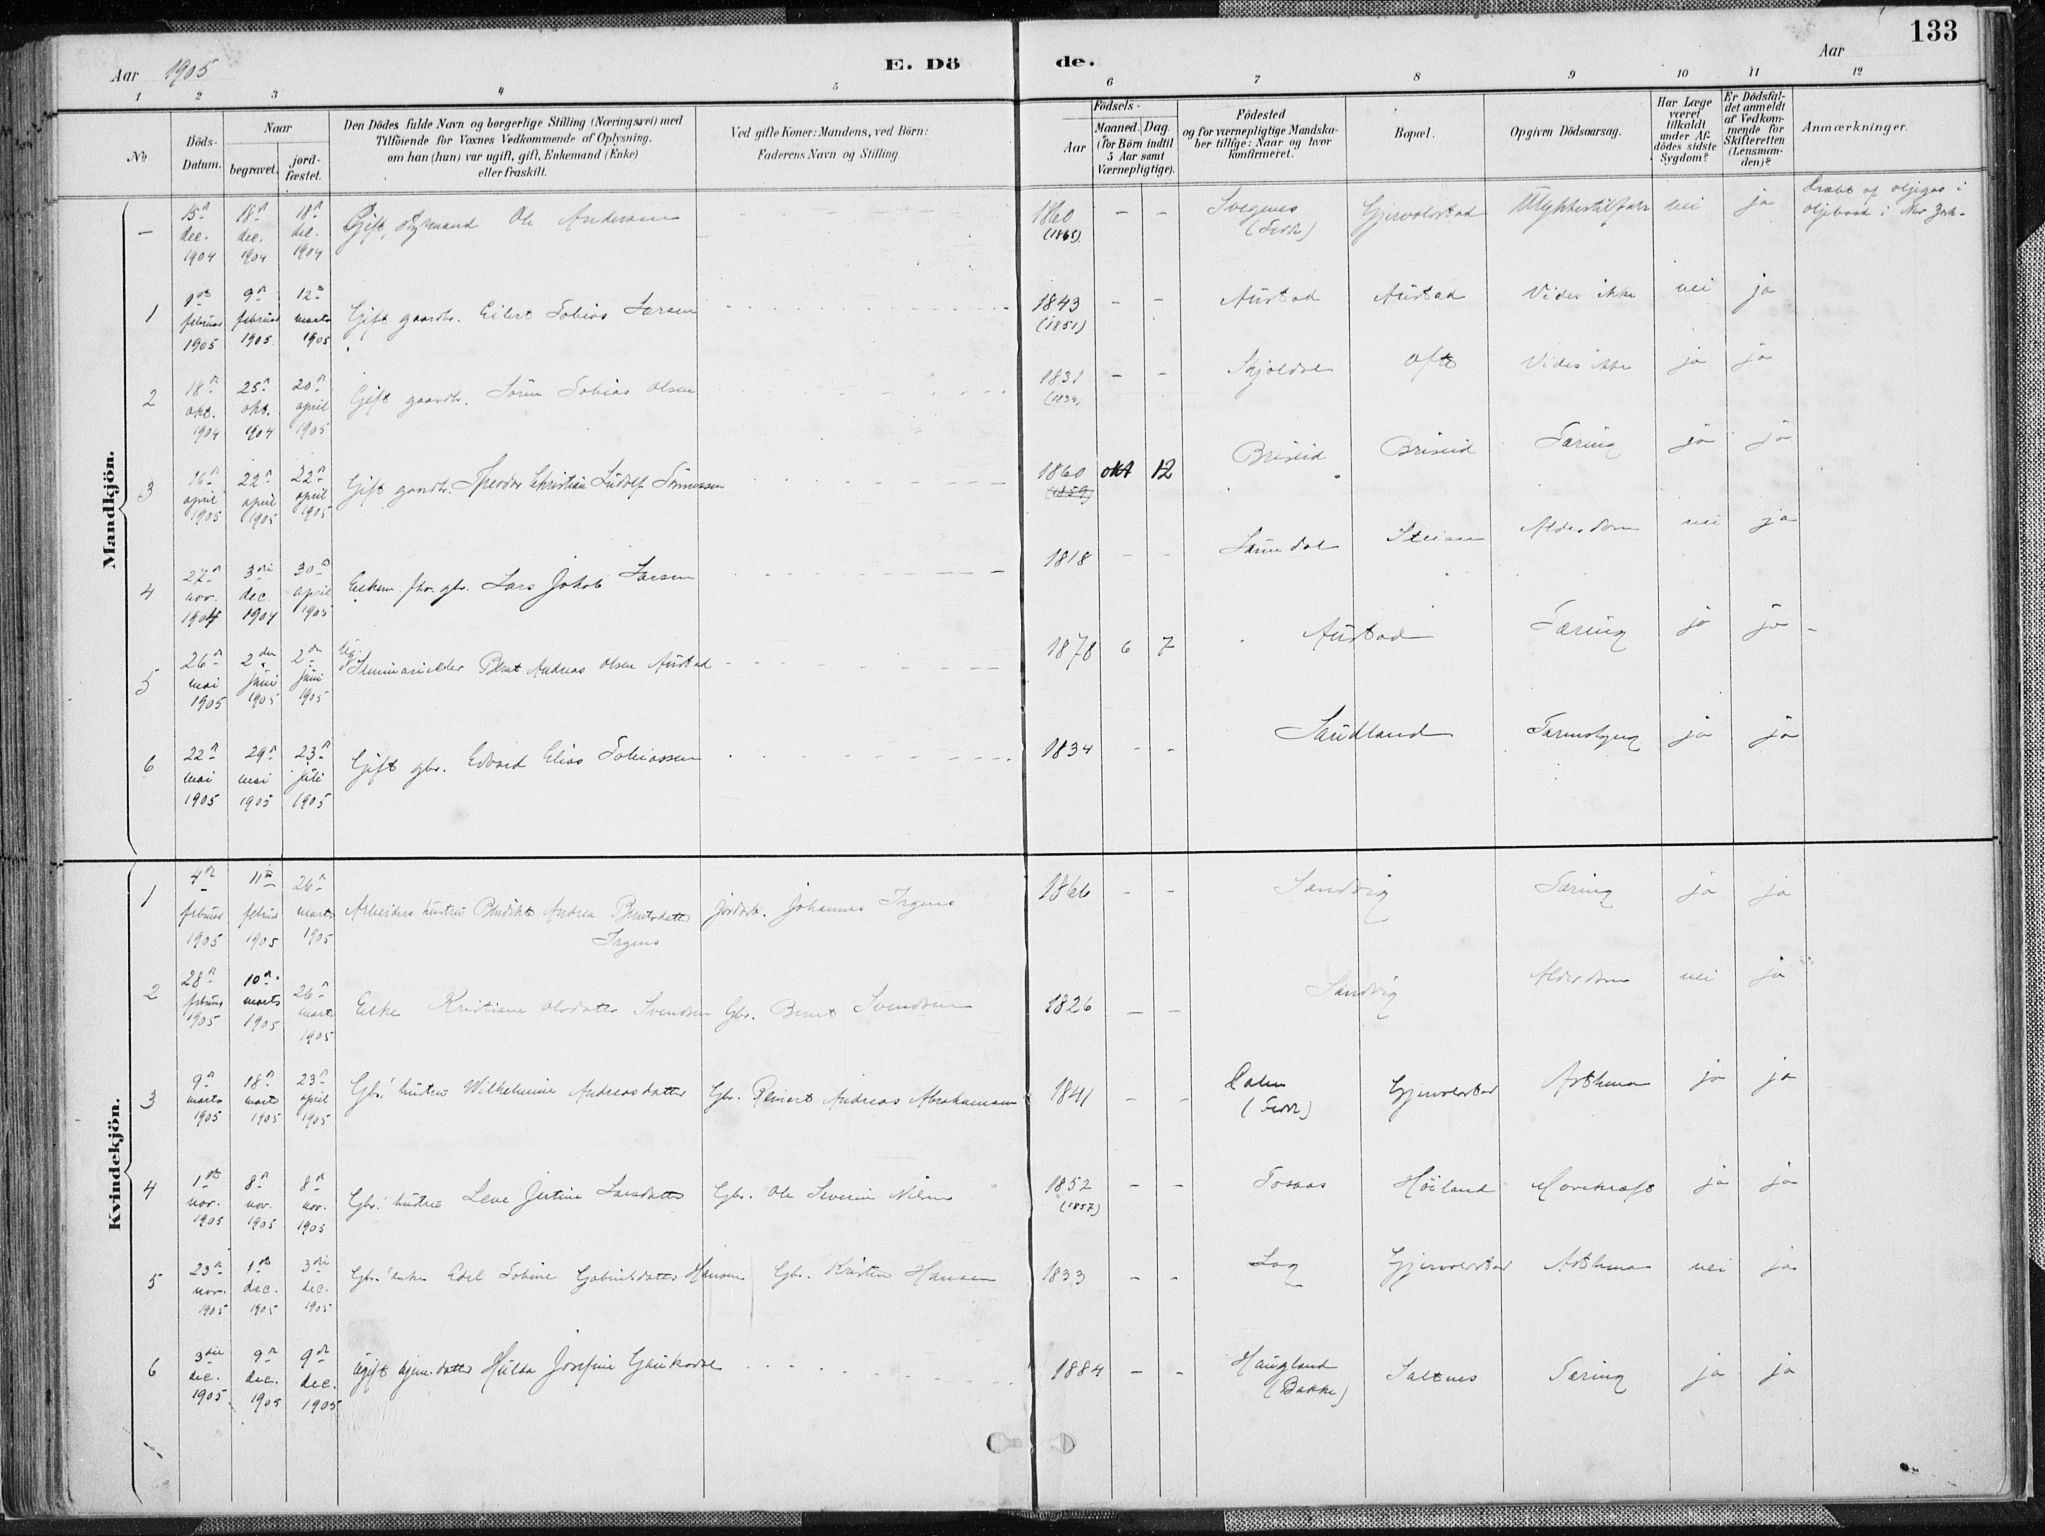 133
Aar 1905 E. Dö de. Aar
1 2 3 4 5 6 7 8 9 10 11 12
No Döds-Datum. Naar begravet. jordfæstet. Den Dödes fulde Navn og borgerlige Stilling (Næringsvei) med Tilföiende for Voxnes Vedkommende af Oplysning, om han (hun) var ugift, gift, Enkemand (Enke) eller fraskilt. Ved gifte Koner: Mandens, ved Börn: Faderens Navn og Stilling. Födsels- Aar Maaned. Dag. (for Börn indtil 5 Aar samt Værnepligtige). Födested og for værnepligtige Mandskaber tillige: Naar og hvor konfirmeret. Bopæl. Opgiven Dödsaarsag. Har Læge været tilkaldt under Afdödes sidste Sygdom? Er Dödsfaldet anmeldt af Vedkommende for Skifteretten (Lensmanden)? Anmærkninger.
Mandkjön.
– 15 dec. 1904 18 dec. 1904 18 dec. 1904 Gift, Ole Andersen 1860 (1865) – – Gjervoldstad nei ja Dræbt af oljegas i
1 februar 1905 9 februar 1905 12 marts 1905 Gift gaardbr. Eilert Tobias Larsen 1843 (1851) – – Austad Austad Vides ikke nei ja
2 18 okt. 1904 25 okt. 1904 20 april 1905 Gift gaardbr. Sören Tobias Olsen 1831 (1834) – – Ofte Vides ikke ja ja
3 16 april 1905 22 april 1905 22 april 1905 Gift gaardbr. Theodor Christian 1860 (1859) okt 12 Briseid Briseid Tæring ja ja
4 27 nov. 1904 3die dec. 1904 30 april 1905 Enkem. gbr. Lars Jakob Larsen 1818 – – Alderdom nei ja
5 26 mai 1905 2den juni 1905 2den juni 1905 Ug. Bernt Andreas Olsen Austad 1878 6 7 Austad Tæring ja ja
6 22 mai 1905 29 mai 1905 23 juli 1905 Gift gbr. Edvard Elias Tobiassen 1834 – – Sandland ja ja
Kvindekjön.
1 4 februar 1905 11 februar 1905 26 marts 1905 Arbeiders hustru Andrea Berntsdatter Irgens Johannes Irgens 1866 – – Sandvig Tæring ja ja
2 28 februar 1905 10 marts 1905 26 marts 1905 Enke Kristiane Olsdatter Svendsen Gbr. Bernt Svendsen 1826 – – Sandvig Alderdom nei ja
3 9 marts 1905 18 marts 1905 23 april 1905 Gbr.' hustru Wilhelmine Andreasdatter Gbr. Reinert Andreas Abrahamsen 1841 – – Gjervoldstad Asthma ja ja
4 1ste nov. 1905 8 nov. 1905 8 nov. 1905 Gbr.' hustru Lene Larsdatter Gbr. Ole Severin Nilsen 1852 (1857) – – Tosaas Höiland Mavekræft ja ja
5 23 nov. 1905 1ste dec. 1905 3die dec. 1905 Gbr.' enke Edel Tobine Gabrielsdatter Hansen Gbr. Hansen 1833 – – Gjervoldstad Asthma nei ja
6 3die dec. 1905 9de dec. 1905 9de dec. 1905 Ugift Hulda Josefine 1884 – – Haugland (Bakke) Saltnes Tæring ja ja